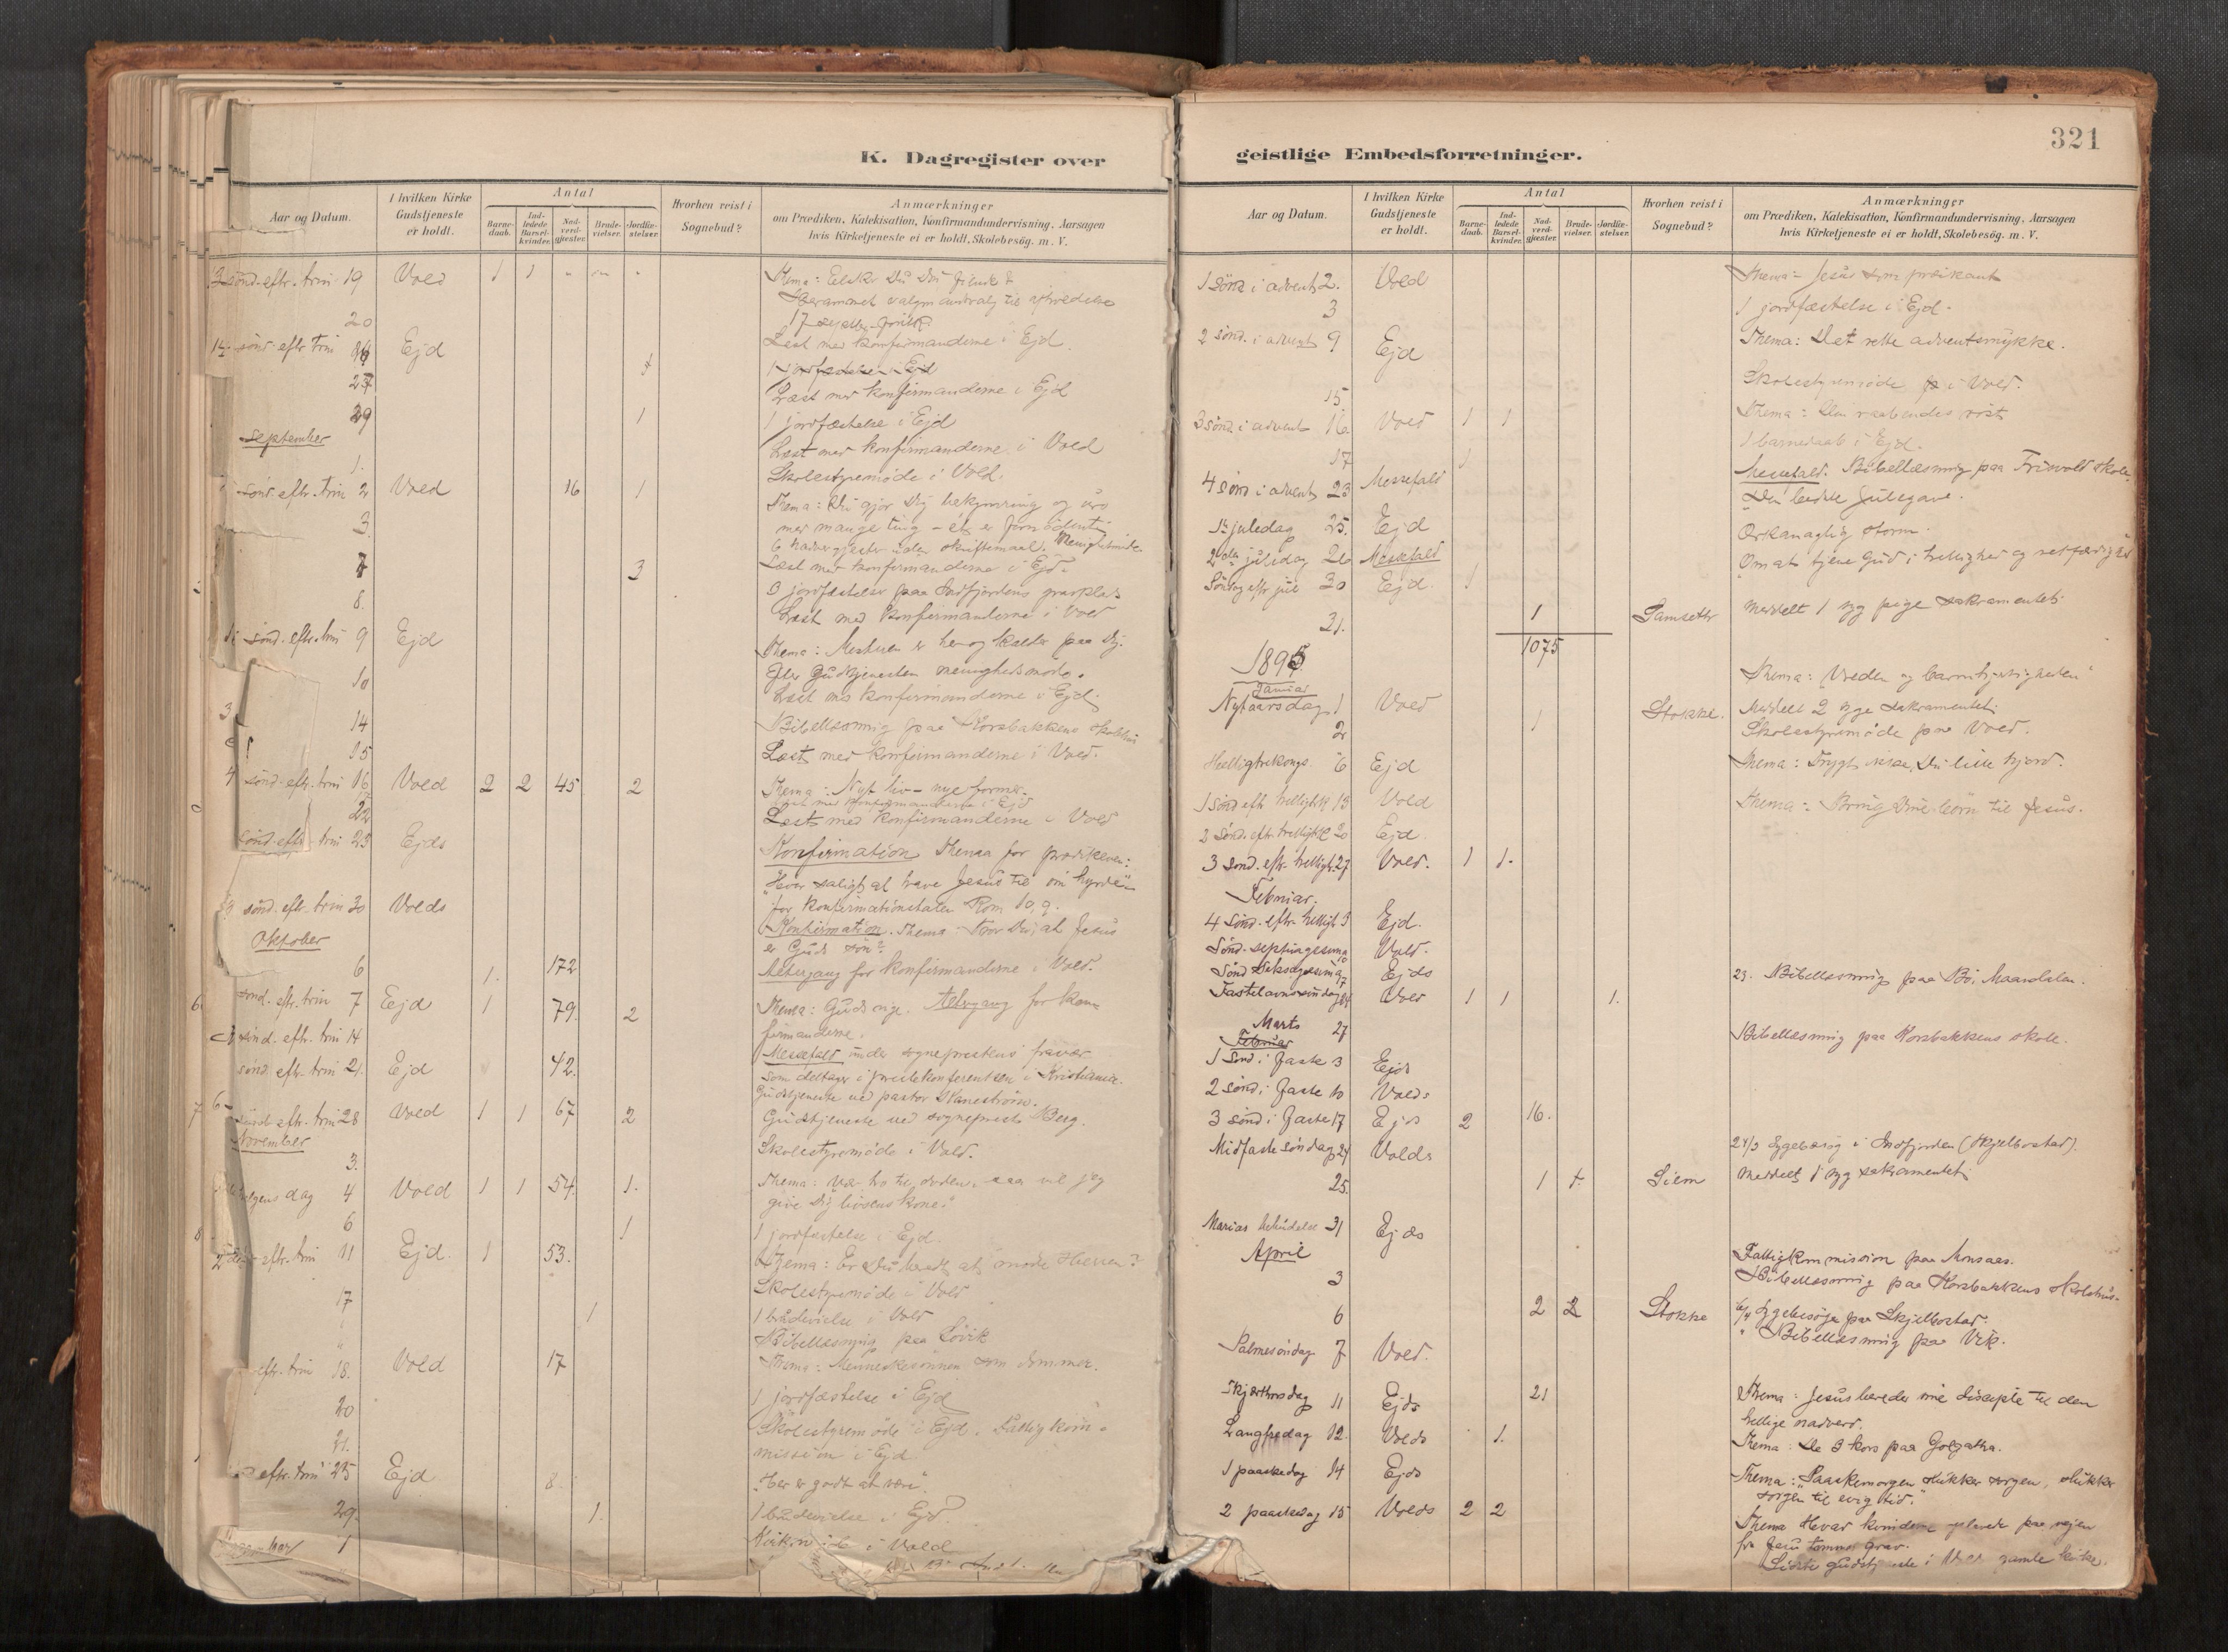 K. Dagregister over
Aar og Datum.
I hvilken Kirke Gudstjeneste er holdt.
Antal
Barne-daab.
Ind-ledede Barsel-kvinder.
Nad-verd-gjæster.
Brude-vielser.
Jordfæ-stelser.
Hvorhen reist i Sognebud?
Anmærkninger
om Prædiken, Katekisation, Konfirmandundervisning, Aarsagen
hvis Kirketjeneste ei er holdt, Skolebesøg. m. V.
sønd. eftr. trin 19 Vold 1 1 Thema: Elsker Du Din
20
sønd. eftr. trin 26 Ejd Læst med konfirmanderne i Ejd.
1 jordfæstelse i Ejd
27 Læst med konfirmanderne i Ejd
29 1 1 jordfæstelse i Ejd
September Læst med konfirmanderne i Vold
1. Skolestyremøde i Vold.
sønd. eftr. trin 2 Vold 16 1 Thema: Du gjør Dig bekymring og uro
3. med mange ting – et er fornødent
6 nadvergjester uden skriftemaal.
Læst med konfirmanderne i Ejd.
7 3 3 jordfæstelser paa Indfjordens gravplads
8. Læst med konfirmanderne i Vold
sønd. eftr. trin 9 Ejd Thema: Mesteren er her og kalder paa Dig.
Efter Gudstjenesten menighedsmøde.
10 Læst med konfirmanderne i Ejd.
14 Bibellæsning paa Korsbakkens skolehus
15 Læst med konfirmanderne i Vold.
sønd. eftr. trin 16 Vold 2 2 45 2 Thema: Nyt liv – nye former.
Læst med konfirmanderne i Ejd
22 Læst med konfirmanderne i Vold
sønd. eftr. trin 23 Ejds Konfirmation Thema for prædikenen:
"Hvor saligt at have Jesus til sin hyrde"
for konfirmationstalen Rom 10,9.
sønd. eftr. trin 30 Volds Konfirmation. Thema Tror Du, at Jesus
Oktober er Guds søn?
6 1. 172 Altergang for konfirmanderne i Vold.
sønd. eftr. trin 7 Ejd 1 79. 2 Thema: Guds rige. Altergang for kon-
firmanderne.
sønd. eftr. trin 14 Messefald under sogneprestens fravær
som deltager i prestekonferentsen i Kristiania.
sønd. eftr. trin 21. Ejd 42. Gudstjeneste ved pastor
sønd. eftr. trin 28 Vold 1 1 67 2 Gudstjeneste ved sogneprest Berg.
November
3. Skolestyremøde i Vold.
helgens dag 4 Vold 1 1 54. 1. Thema: Vær tro til døden, saa vil jeg
give Dig livsens krone.
6 1 1 jordfæstelse i Ejd.
eftr. trin 11 Ejd. 1 53. Thema: Er Du beredt at møde Herren?
Skolestyremøde i Vold
17 1 1 brudevielse i Vold
Bibellæsning paa Løvik
eftr. trin 18. Vold 17 Thema: Menneskesønnen som dommer.
1 jordfæstelse i Ejd
20 Skolestyremøde i Ejd. Fattigkom-
21. mission i Ejd.
eftr. trin 25 Ejd 8. "Her er godt at være".
29. 1. 1 brudevielse i Ejd.
1 i Vold
321
geistlige Embedsforretninger.
Aar og Datum.
I hvilken Kirke Gudstjeneste er holdt.
Antal
Barne-daab.
Ind-ledede Barsel-kvinder.
Nad-verd-gjæster.
Brude-vielser.
Jordfæ-stelser.
Hvorhen reist i Sognebud?
Anmærkninger
om Prædiken, Katekisation, Konfirmandundervisning, Aarsagen
hvis Kirketjeneste ei er holdt, Skolebesøg. m. V.
1 sønd i advent 2. Vold Thema: Jesus som prædikant
3 1 jordfæstelse i Ejd.
2 sønd. i advent 9 Ejd Thema: Det rette adventsmykke.
15 Skolestyremøde i Vold.
3 sønd. i advent 16 Vold 1 1 Thema: røst
17 1 1 barnedaab i Ejd.
4 sønd i advent 23 Messefald Messefald. Bibellæsning paa Frisvold skole.
1ste juledag 25. Ejd Den bedste julegave.
2den juledag 26 Messefald Orkanagtig storm.
Søndag eftr jul 30 Ejd. 1 Om at tjene Gud i hellighed og retfærdighed
31. 1 Samseth Meddelt 1 syg pige sakramentet.
1075
1895
Januar
Nytaarsdag 1 Vold Thema: "Vreden og barmhjertigheden"
2 1 Stokke. Meddelt 2 syge sakramentet.
Skolestyremøde paa Vold.
Helligtrekongs. 6 Ejd Thema: Frygt ikke, Du lille hjord.
1 sønd eftr helligtr 13 Vold Thema: Bring Dine børn til Jesus.
2 sønd. eftr. helligtr 20 Ejd.
3 sønd. eftr. helligtr. 27 Vold. 1 1.
Februar.
4 sønd. eftr. helligtr 3 Ejd.
Sønd. septuagesima 10 Vold.
Sønd Seksagesima 17 Ejds
Fastelavnssøndag 24 Vold 1 1 1. 23. Bibellæsning paa Bø, Maandalen.
Marts 27 Bibellæsning paa Korsbakkens skole.
Februar
1 Sønd. i faste 3 Ejds
2 sønd. i faste 10 Volds
3 sønd. i faste 17 Ejds 2 16.
Midfaste søndag 24 Volds 24/3 Sygebesøg i Indfjorden (Skjelbostad).
25. 1 Siem Meddelt 1 syg sakramentet
Marias bebudelse 31 Ejds
April Fattigkommission paa Monsaas.
3 Bibellæsning paa Korsbakkens skolehus.
6 2 2 Stokke 6/4 Sygebesøg paa Skjelbostad.
" Bibellæsning paa Vik.
Palmesøndag 7 Vold.
Skjærthorsdag 11 Ejds 21 Thema: Jesus bereder sine disciple til den
hellige nadverd.
Langfredag 12. Volds 1. Thema: De 3 kors paa Golgatha.
1 paaskedag 14 Ejds Thema: "Paaskemorgen slukker sorgen, slukker
sorgen til evig tid."
2 paaskedag 15 Volds 2 2 Thema Hvad kvinderne oplevede paa vejen
fra Jesu tomme grav.
Sidste gudstjeneste i Volds gamle kirke.